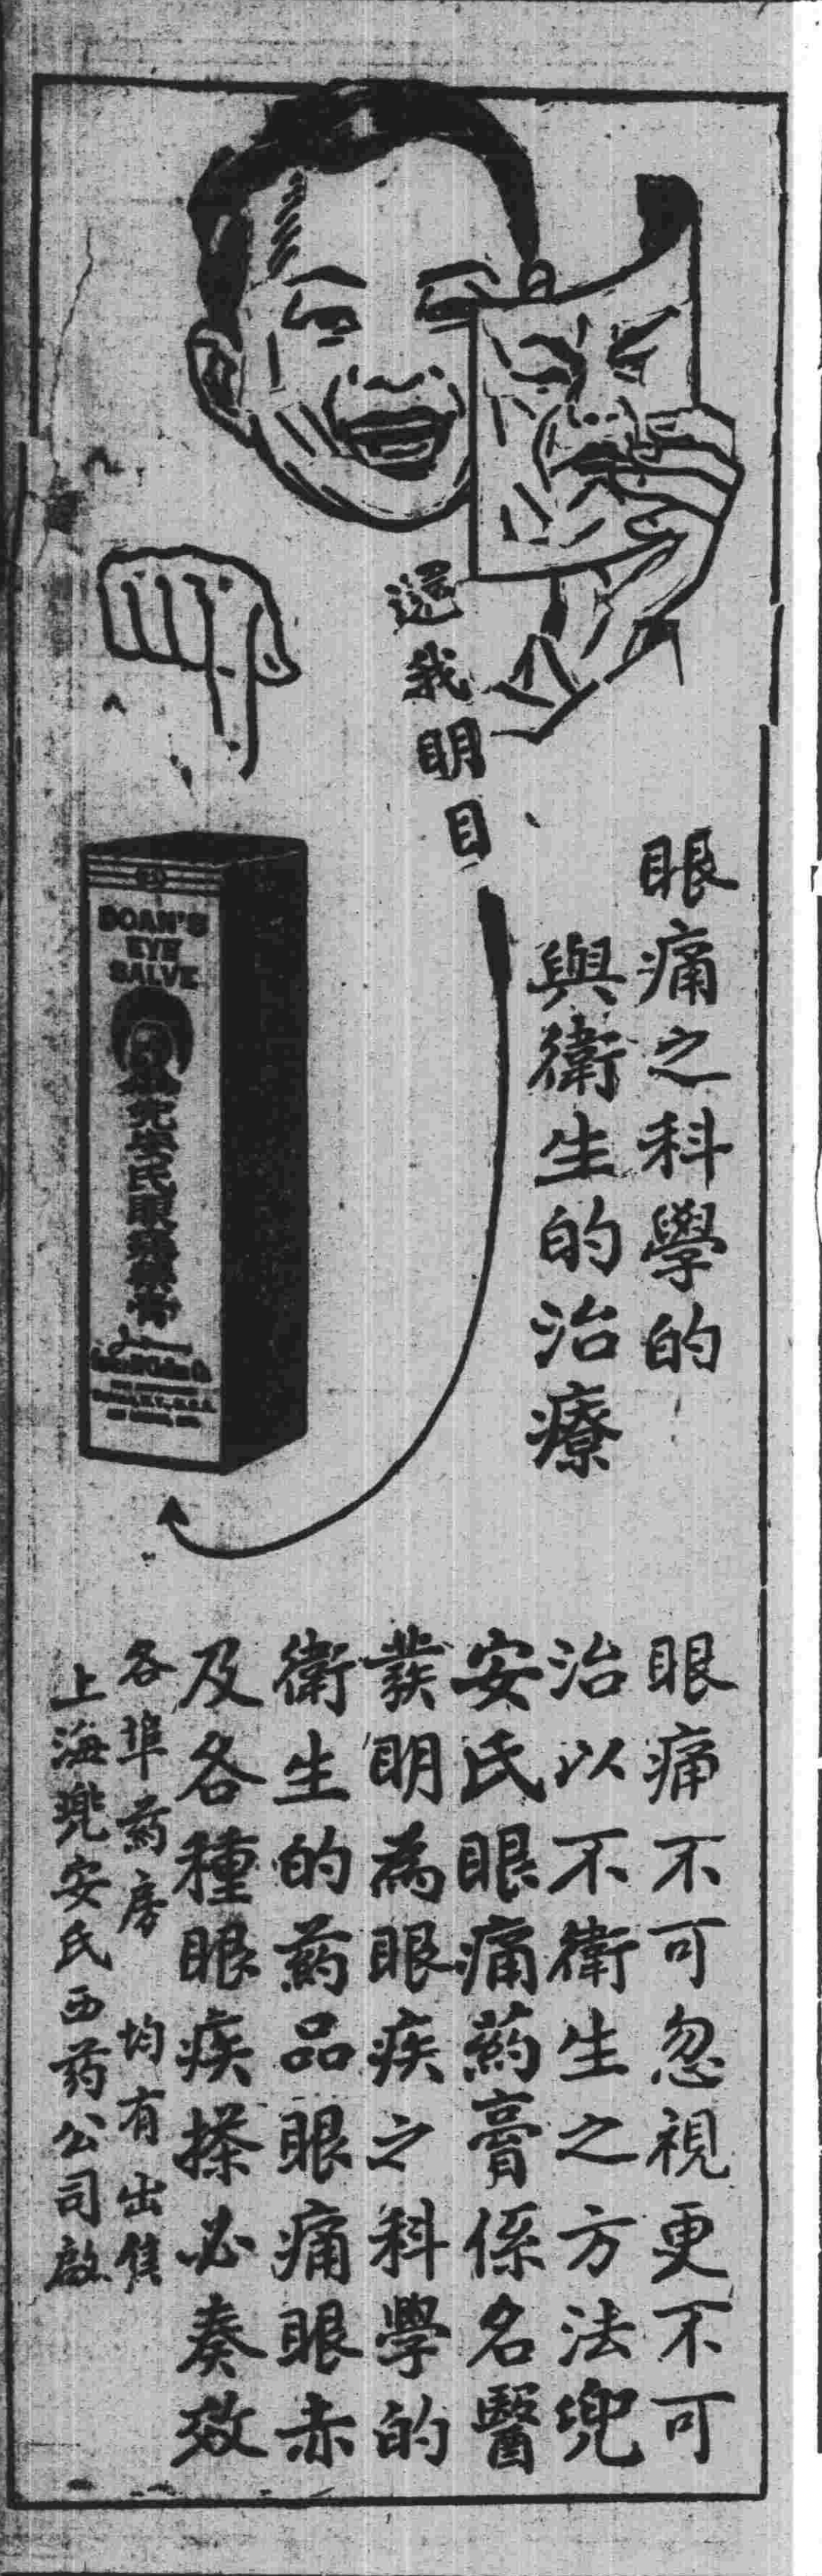 還我明目
眼痛之科學的
與衛生的治療
DOAN'S
EYE
SALVE
兜安氏眼痛藥膏
眼痛不可忽視更不可
治以不衛生之方法兜
安氏眼痛葯膏係名醫
發明為眼疾之科學的
衛生的葯品眼痛眼赤
及各種眼疾搽必奏效
各埠葯房 均有出售
上海兜安氏西药公司啟